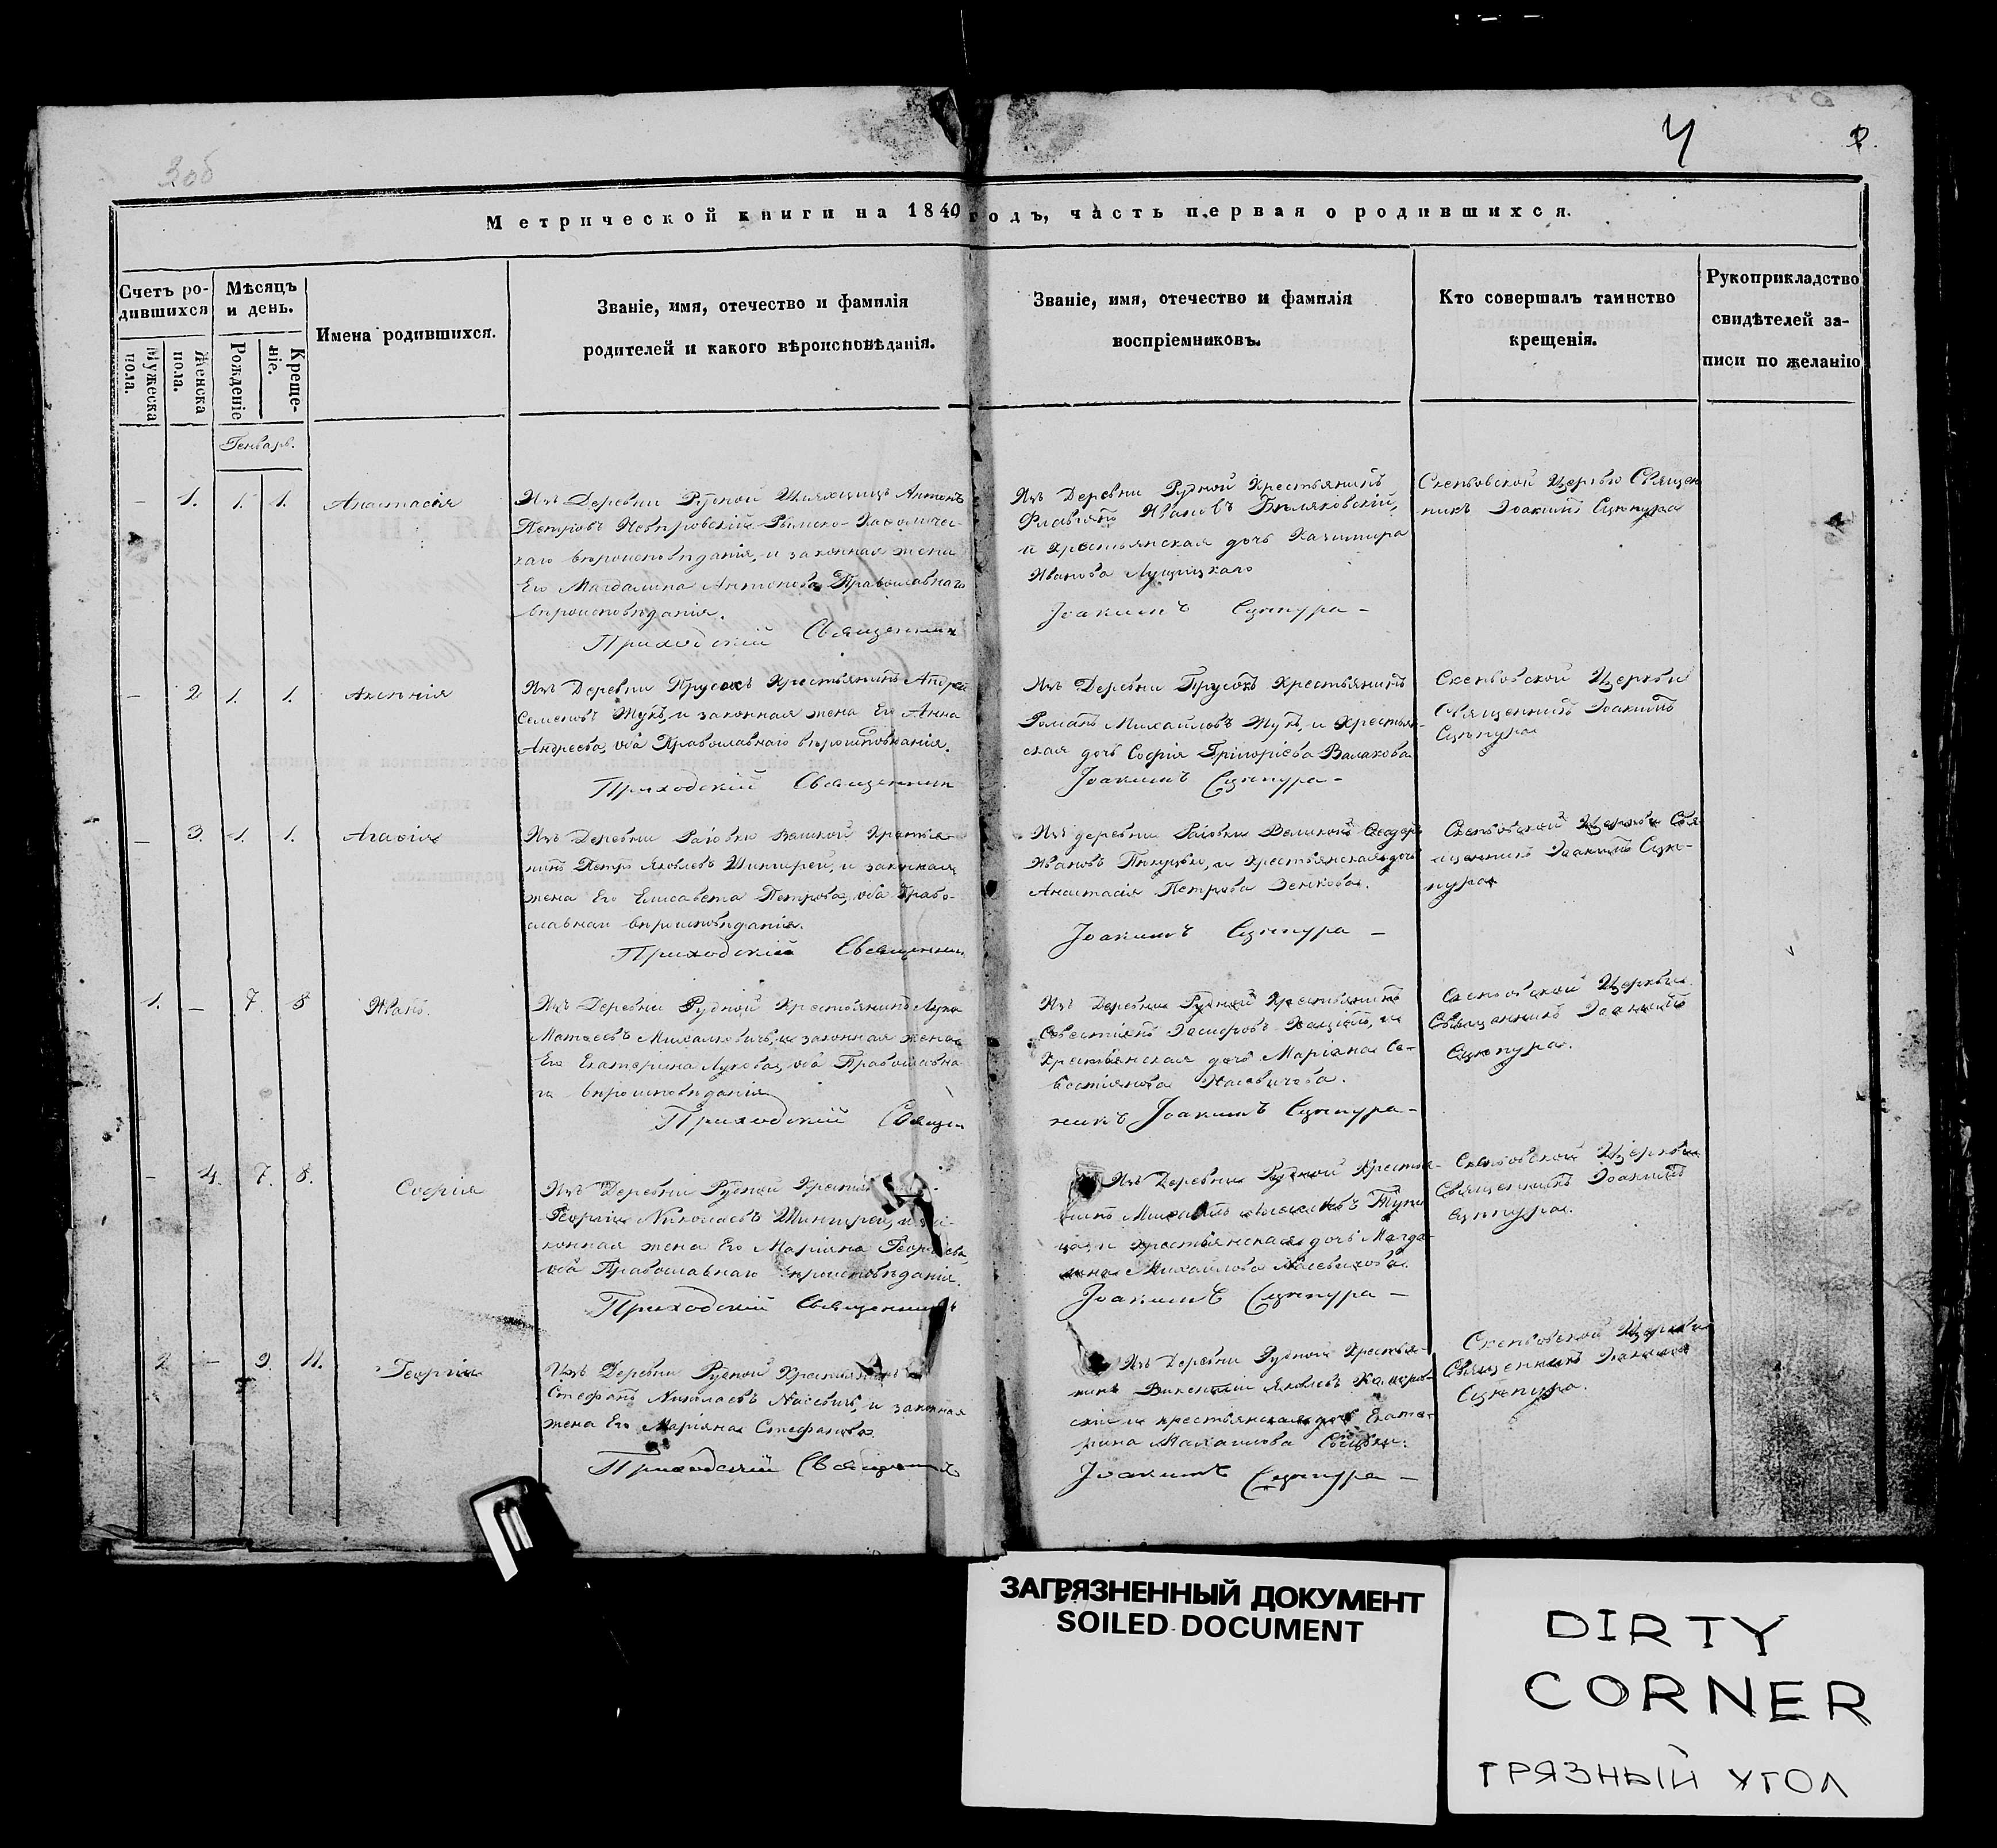 4
2.
306
Метрической книги на 1840 годъ, часть первая о родившихся.
Счетъ ро-
дившихся
Мужеска
пола.
Женска
пола.
Мѣсяцъ
и день.
Рожденіе
Креще-
ніе.
Имена родившихся.
Званіе, имя, отечество и фамилія
родителей и какого вѣроисповѣданія.
Званіе, имя, отечество и фамилія
воспріемниковъ.
Кто совершалъ таинство
крещенія.
Рукоприкладство
свидѣтелей за-
писи по желанію
Генварь.
— 1. 1. 1. Анастасія
Изъ Деревни Рудной Шляхтичъ Антонъ
Петровъ Римско-Католичес-
каго вѣроисповѣданія, и законная жена
Его Магдалина Антонова Православнаго
вѣроисповѣданія.
Приходскій Священникъ
Изъ Деревни Рудной Крестьянинъ
Ивановъ Бѣляковскій,
и крестьянская дочь Казимира
Иванова
Іоакимъ Сцепура —
Церкви Священ
никъ Іоакимъ Сцепура
— 2 1. 1. Аксенія
Изъ Деревни Прусокъ Крестьянинъ Андрей
Семеновъ Жукъ, и законная жена Его Анна
Андреева, оба Православнаго вѣроисповѣданія.
Приходскій Священник
Изъ Деревни Прусокъ Крестьянинъ
Романъ Михайловъ Жукъ, и Крестьян-
ская дочь Софія Григоріева Валахова
Іоакимъ Сцепура —
Церкви
Священникъ Іоакимъ
Сцепура
— 3. 1. 1. Агафія
Изъ Деревни Великой Крестья-
нинъ Петръ Яковлевъ Шингирей, и законная
жена Его Елисавета Петрова, оба Право-
славнаго вѣроисповѣданія.
Приходскій Священник
Изъ деревни Великой Феодоръ
Ивановъ и крестьянская дочь
Анастасія Петрова Зенкова.
Іоакимъ Сцепура —
Церкви Свя
щенникъ Іоакимъ Сце-
пура
1. — 7. 8 Иванъ.
Изъ Деревни Рудной Крестьянинъ Лука
Матѳеевъ Михалковичъ, и законная жена
Его Екатерина Лукова, оба Православна-
го вѣроисповѣданія
Приходскій Священ
Изъ Деревни Рудной Крестьянинъ
и
Крестьянская дочь Маріяна Се-
вастіянова
никъ Іоакимъ Сцепура —
Церкви
Священникъ Іоакимъ
Сцепура.
— 4. 7. 8. Софія
Изъ Деревни Рудной
Георгій Николаевъ Шингирей, и за-
конная жена Его Маріяна Георгіева,
оба Православнаго вѣроисповѣданія.
Приходскій Священникъ
Изъ Деревни Рудной Крестья-
нинъ Михаилъ
и крестьянская дочь Магда-
лина Михайлова
Іоакимъ Сцепура —
Церкви
Священникъ Іоакимъ
Сцепура.
2 — 9. 11. Георгій
Изъ Деревни Рудной Крестьянинъ
Стефанъ Николаевъ и законная
жена Его Маріяна Стефанова
Приходскій Священникъ
Изъ Деревни Рудной Крестья-
нинъ Викентій Яковлевъ
и крестьянская дочь Екате-
рина
Іоакимъ Сцепура —
Церкви
Священникъ Іоакимъ
Сцепура.
ЗАГРЯЗНЕННЫЙ ДОКУМЕНТ
SOILED DOCUMENT
DIRTY
CORNER
ГРЯЗНЫЙ УГОЛ